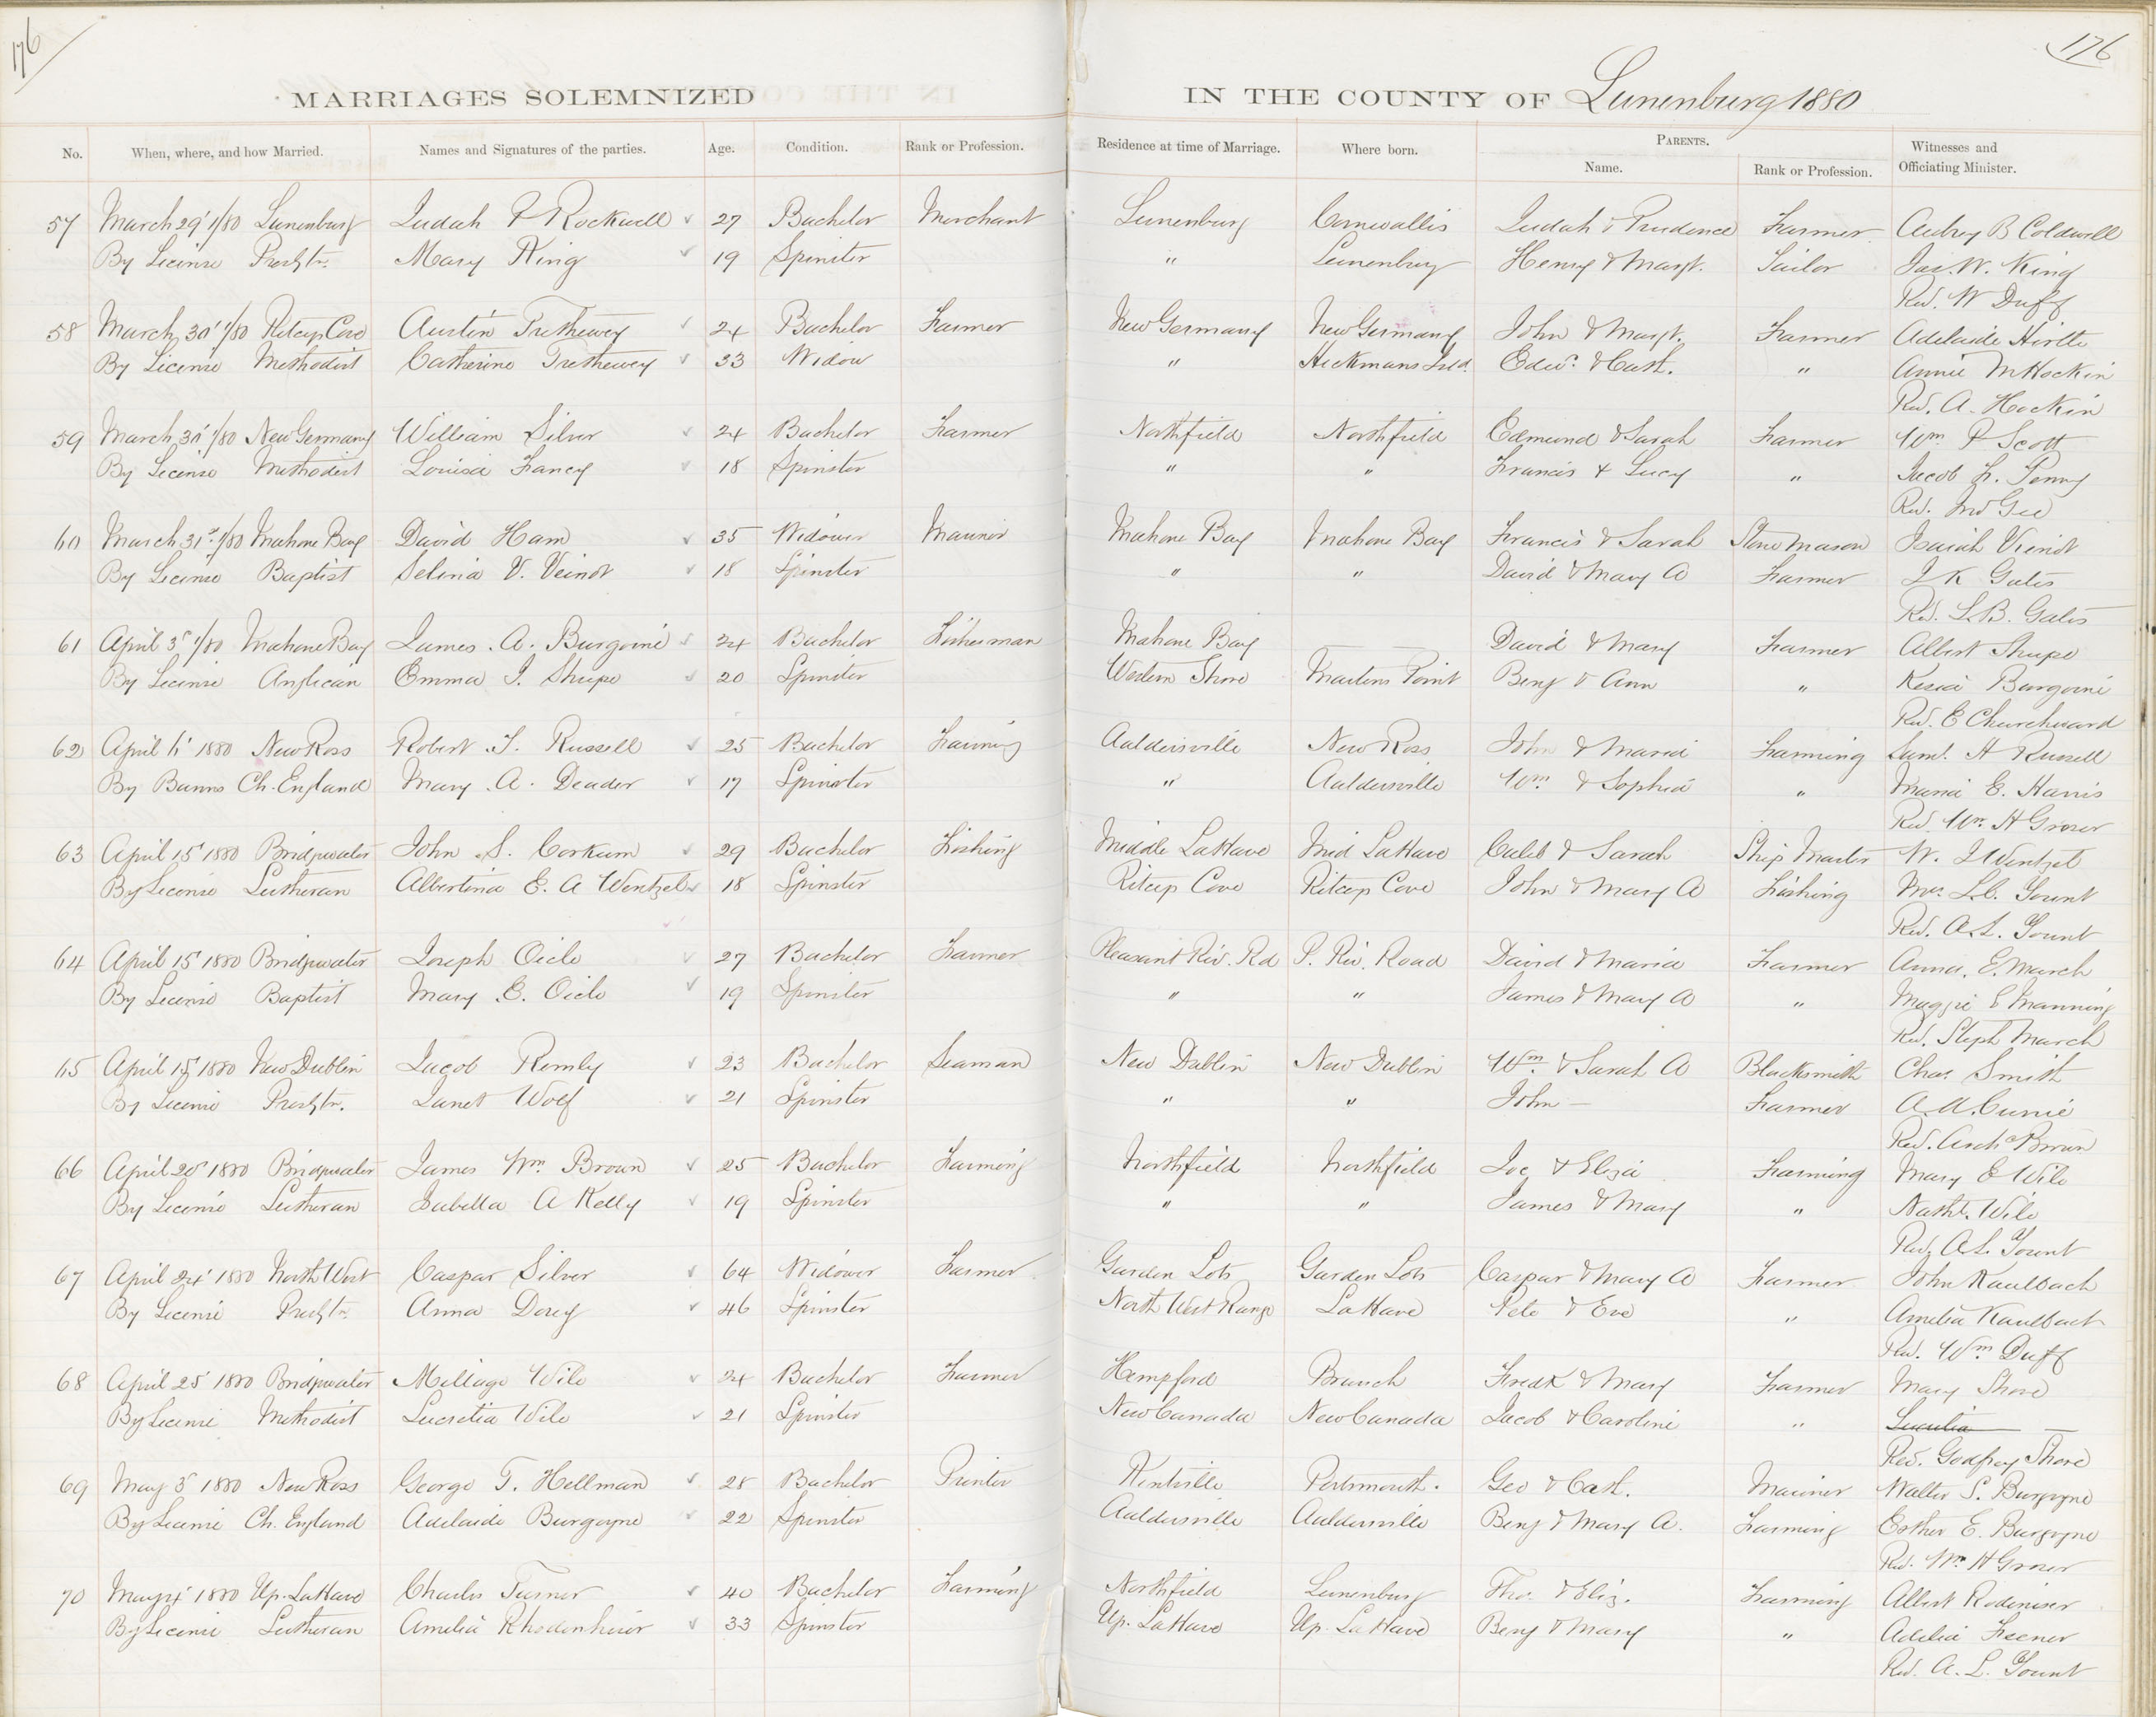 176
176
MARRIAGES SOLEMNIZED IN THE COUNTY OF Lunenburg 1880
No. When, where, and how Married. Names and Signatures of the parties. Age. Condition. Rank or Profession. Residence at time of Marriage. Where born. PARENTS. Name. Rank or Profession. Witnesses and Officiating Minister.
57 March 29' 1/80 Lunenburg Judah P Rockwell 27 Bachelor Merchant Lunenburg Cornwallis Judah & Prudence Farmer Aubrey B Coldwell
By License Presbtn. Mary King 19 Spinster " Lunenburg Henry & Margt. Sailor Jas. W. King
Rev. W Duff
58 March 30' 1/80 Ritcey Cove Austin Trethewey 24 Bachelor Farmer New Germany New Germany John & Margt. Farmer Adelaide Hirtle
By License Methodist Catherine Trethewey 33 Widow " Heckmans Isld. Edwd. & Cath. " Annie M Hockin
Rev. A. Hockin
59 March 30' 1/80 New Germany William Silver 24 Bachelor Farmer Northfield Northfield Edmund & Sarah Farmer Wm P Scott
By License Methodist Louisa Fancy 18 Spinster " " Francis & Lucy " Jacob F. Penny
Rev. Jno Gee
60 March 31st 1/80 Mahone Bay David Ham 35 Widower Mariner Mahone Bay Mahone Bay Francis & Sarah Stone Mason Isaiah Vienot
By License Baptist Selina V. Veinot 18 Spinster " " David & Mary A Farmer J K Gates
Rev. L.B. Gates
61 April 3' 1/80 Mahone Bay James. A. Burgoine 24 Bachelor Fisherman Mahone Bay — — David & Mary Farmer Albert Strupe
By License Anglican Emma J. Strupe 20 Spinster Western Shore Martins Point Benj & Ann " Kesia Burgoine
Rev. E Churchward
62 April 6' 1880 New Ross Robert J. Russell 25 Bachelor Farming Aaldersville New Ross John & Maria Farming Saml. H Russell
By Banns Ch. England Mary. A. Deader 17 Spinster " Aaldersville Wm & Sophia " Maria E. Harris
Rev. Wm. H Groser
63 April 15' 1880 Bridgwater John S. Corkum 29 Bachelor Fishing Middle LaHave Mid LaHave Caleb & Sarah Ship Master W. J Wentzel
By License Lutheran Albertina E. A Wentzel 18 Spinster Ritcey Cove Ritcey Cove John & Mary A Fishing Mrs. L.C. Yount
Rev. A.L. Yount
64 April 15' 1880 Bridgwater Joseph Oicle 27 Bachelor Farmer Pleasant Riv. Rd P. Riv. Road David & Maria Farmer Anna. E. March
By License Baptist Mary E. Oicle 19 Spinster " " James & Mary A " Maggie E Manning
Rev. Steph March
65 April 15' 1880 New Dublin Jacob Remby 23 Bachelor Seaman New Dublin New Dublin Wm. & Sarah A Blacksmith Chas. Smith
By License Presbtn. Janet Wolf 21 Spinster " " John — Farmer A. A. Currie
Rev. Archd Brown
66 April 20' 1880 Bridgwater James Wm. Brown 25 Bachelor Farming Northfield Northfield Joe & Eliza Farming Mary E Wile
By License Lutheran Isabella A Kelly 19 Spinster " " James & Mary " Nathl. Wile
Rev. A.L. Yount
67 April 24' 1880 North West Caspar Silver 64 Widower Farmer Garden Lots Garden Lots Caspar & Mary A Farmer John Kaulbach
By License Presbtn. Anna Dorey 46 Spinster North West Range LaHave Pete & Eve " Amelia Kaulbach
Rev. Wm Duff
68 April 25' 1880 Bridgwater Millage Wile 24 Bachelor Farmer Hempford Branch Fredk & Mary Farmer Mary Shore
By License Methodist Lucretia Wile 21 Spinster New Canada New Canada Jacob & Caroline " Lucretia —
Rev. Godfrey Shore
69 May 3' 1880 New Ross George T. Hellman 28 Bachelor Printer Kentville Portsmouth. Geo & Cath. Mariner Walter S. Burgoyne
By License Ch. England Adelaide Burgoyne 22 Spinster Aaldersville Aaldersville Benj & Mary A. Farming Esther E. Burgoyne
Rev. Wm H Groser
70 May 4' 1880 Up. LaHave Charles Turner 40 Bachelor Farming Northfield Lunenburg Tho. & Eliz. Farming Albert Rodeniser
By License Lutheran Amelia Rhodenheiser 33 Spinster Up. LaHave Up. LaHave Benj & Mary " Adelia Feener
Rev. A. L. Yount